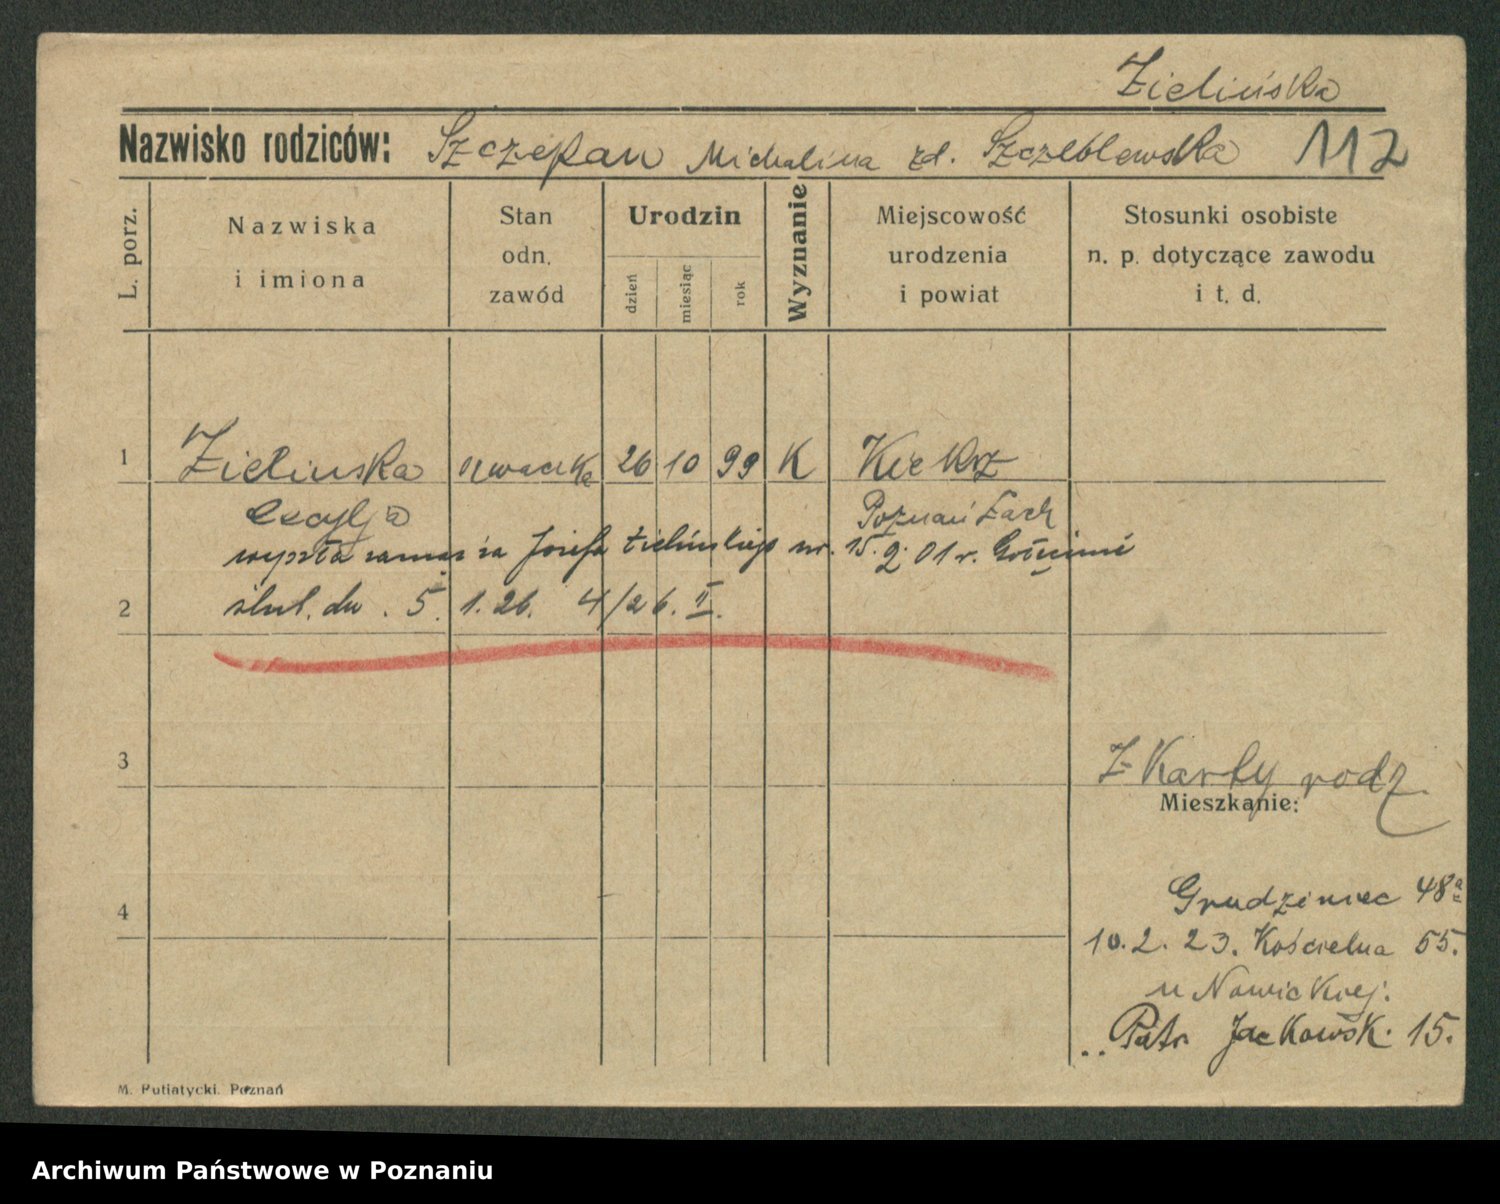 Zielińska
Nazwisko rodziców: Szczepan Michalina zd. Szczeblewska 112
L. porz.
Nazwiska
i imiona
Stan
odn.
zawód
Urodzin
dzień
miesiąc
rok
Wyznanie
Miejscowość
urodzenia
i powiat
Stosunki osobiste
n. p. dotyczące zawodu
i t. d.
1 Zielinska 26 10 99 K Kiekrz
Poznań Zach
wyszła za Józefa Zielińskiego ur. 15. 9. 01 r.
2 ślub. dn. 5. 1. 26. 4/26. II.
3
Z Karty rodz.
Mieszkanie:
4
Grudzieniec 48a
10. 2. 23. Kościelna 55.
u Nowickiej.
" Patr. Jackowsk. 15.
M. Putiatycki. Poznań
Archiwum Państwowe w Poznaniu